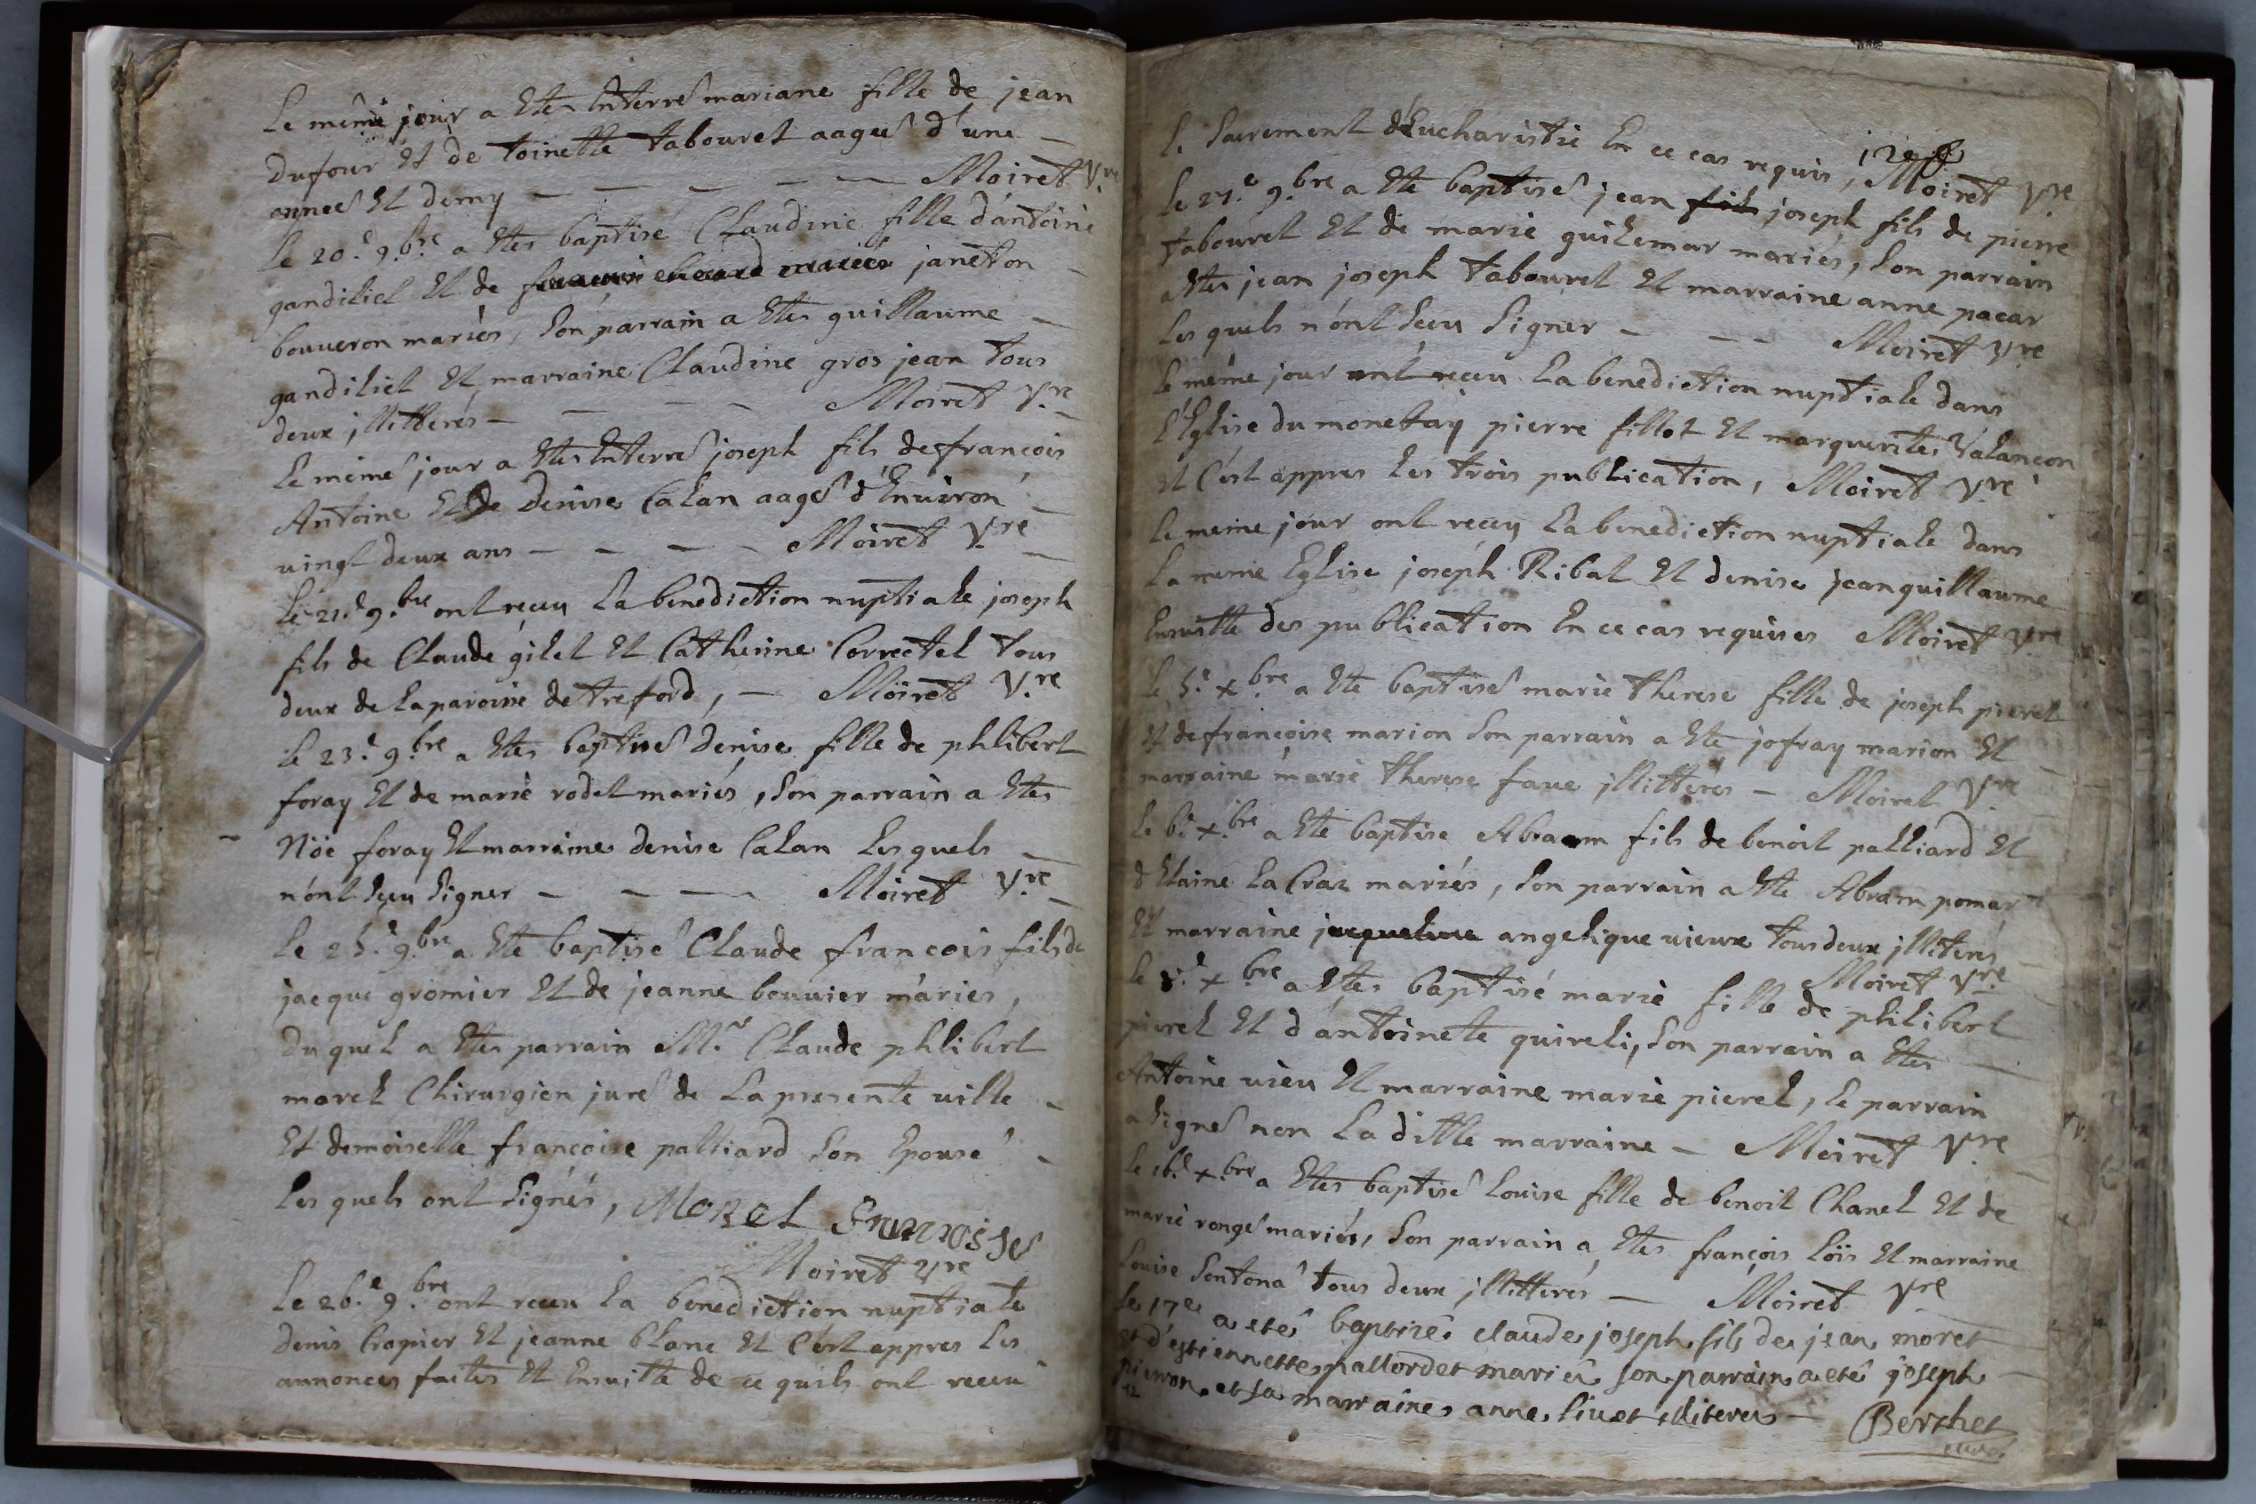 Le même jour a Etes Enterré mariane fille de jean
Dufour Et de toinette tabouret aagée d'une
année Et demy — Moiret V.re
Le 20.e 9.bre a Etes baptisé Claudine fille d'antoine
gandiliet Et de janeton
bouueron mariés, Son parrain a Etes guillaume
gandiliet Et marraine Claudine gros jean tous
deux jllitterés — Moiret V.re
Le même jour a Etes Enterré joseph fils de françois
Antoine Et de Denise Calan aagé d'Enuiron
uingt deux ans — Moiret V.re
Le 21.e 9.bre ont reçu La benediction nuptiale joseph
fils de Claude gilet Et Catherine Correctel tous
deux de La paroisse de treford, — Moiret V.re
Le 23.e 9.bre a Etes baptisé Denise fille de phlibert
foray Et de marie rodet mariés, Son parrain a Etes
Nöe foray Et marraine denise Calan Les quels
n'ont Sçeu Signer — Moiret V.re
Le 25.e 9.bre a Ete baptisé Claude francois fils de
jacque gromier Et de jeanne bouuier mariés,
Du quel a Etes parrain M.r Claude phlibert
morel Chirurgien juré de La presente uille
Et demoiselle françoise palliard Son Epouse
Les quels ont Signés, Morel Francoise
Moiret Vre
Le 26.e 9.bre ont receu La benediction nuptiale
denis Crapier Et jeanne blanc Et C'est appres Les
annonces faites Et Ensuitte de ce quils ont receu
Le Sacrement d'Eucharistie En ce cas requis, Moiret V.re
Le 27.e 9.bre a Ete baptisé jean fils joseph fils de pierre
tabouret Et de marie guilemar mariés, Son parrain
a Etes jean joseph tabouret Et marraine anne pacar
Les quels n'ont Sçeu Signer — Moiret V.re
Le même jour ont reçeu La benediction nuptiale dans
L'Eglise du monetay pierre fillot Et marguerite Valançon
Et C'est appres Les trois publication, Moiret V.re
Le meme jour ont reçeu La benediction nuptiale dans
La meme Eglise joseph Ribat Et denise jeanguillaume
Ensuitte des publication En ce cas requises Moiret V.re
Le 5.e x.bre a Ete baptisé marie therese fille de joseph pieret
Et de françoise marion Son parrain a Ete jofray marion Et
marraine marie therese faue jllitterés — Moiret V.re
Le 6.e x.bre a Ete baptise Abraam fils de benoit palliard Et
d'Elaine La Craz mariés, Son parrain a Ete Abram pomar
Et marraine jacqueline angelique uieux tous deux jlliterés
Moiret V.re
Le 8.e x.bre a Etes baptisé marie fille de philibert
pieret Et d'antoinete quireli, Son parrain a Etes
Antoine uieu Et marraine marie pieret, Le parrain
a Signé non La ditte marraine — Moiret V.re
Le 16.e x.bre a Etes baptisé Louise fille de benoit Chanel Et de
marie rongé mariés, Son parrain a Etes françois Loïs Et marraine
Louise Sontona tous deux jllitterés — Moiret V.re
Le 17e a eté baptizé claude joseph fils de jean moret
et d'estiennette pallordet mariés son parrain a eté joseph
pierron et sa marraine anne liuet illiterés — Berthet
curé